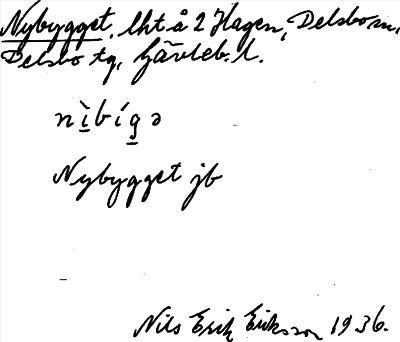 Nybygget, lht å 2 Hagen, Delsbo sn,
Delsbo tg, Gävleb. l.
nìbígə
Nybygget jb
Nils Erik Eriksson 1936.